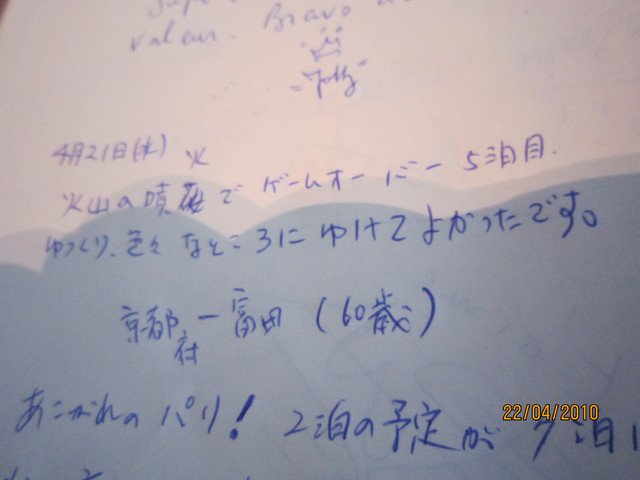 valeur. Bravo
4月21日(水) 火
火山の噴在でゲームオーバー 5泊目.
ゆっくり、色々なところにゆけてよかったです。
京都府 ー 富田 (60歳)
あこがれのパリ! 2泊の予定が7泊
22/04/2010